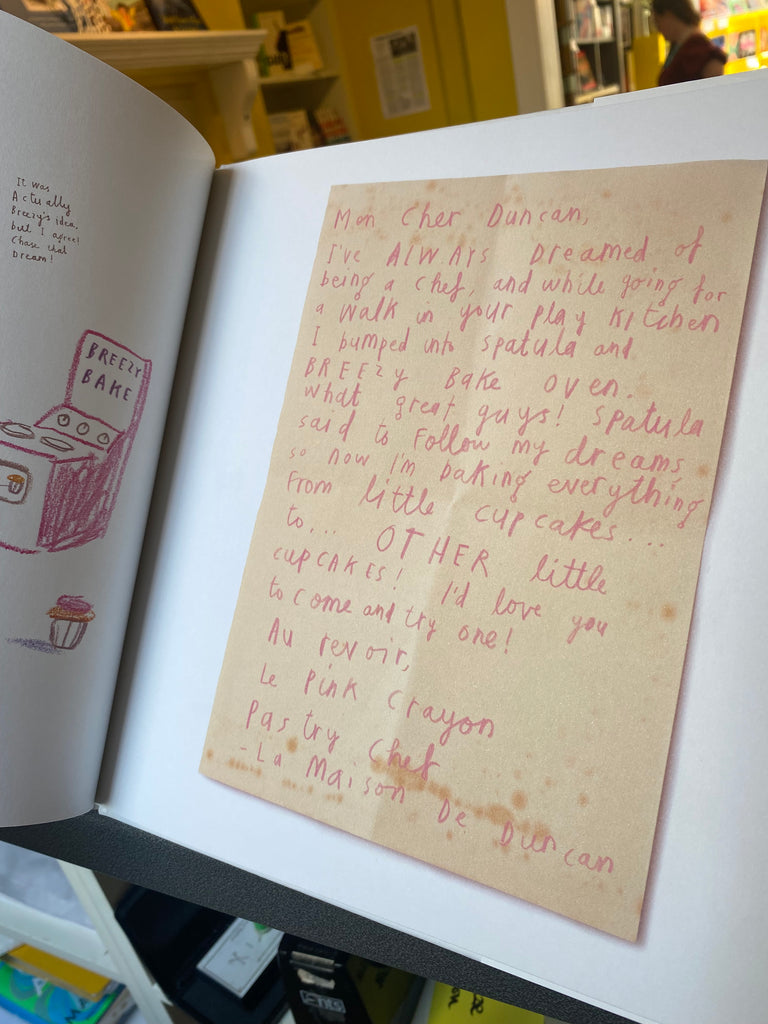 It was
Actually
Breezy's idea,
but I agree!
Chase that
Dream!
BREEZY
BAKE
Mon Cher Duncan,
I've ALWAYS Dreamed of
being a chef, and while going for
a walk in your play kitchen
I bumped into spatula and
BREEZY Bake oven.
what great guys! Spatula
said to Follow my dreams,
so now I'm baking everything
From little cupcakes...
to... OTHER little
cupCAKES! I'd love you
to come and try one!
Au revoir,
Le Pink Crayon
Pastry Chef
-La Maison De Duncan